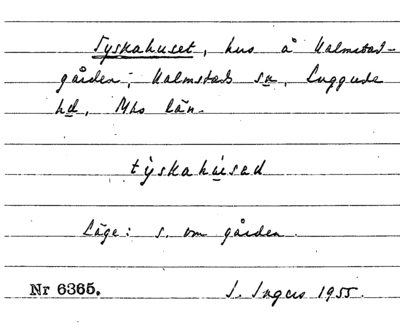 Tyskahuset, hus å Kalmstad-
gården, Kalmstads sn, Luggude
hd, Mhs län.
týskahúsəd
Läge: s. om gården.
Nr 6365. I. Ingers 1955.